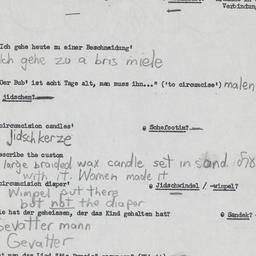 Verbindun
Ich gehe heute zu einer Beschneidung'
Ich gehe zu a bris miele
Der Bub' ist acht Tage alt, man muss ihn..." ('to circumcise') malen
jidschen?
circumcision candles' @ Schofostim?
Jidschkerze
escribe the custom
large braided wax candle set in sand
with it. Women made it
circumcision diaper' @ Jidschwindel / -wimpel?
Wimpel put there
but not the diaper
ie hat der geheissen, der das Kind gehalten hat? @ Sandek?
Gevatter mann
Gevatter